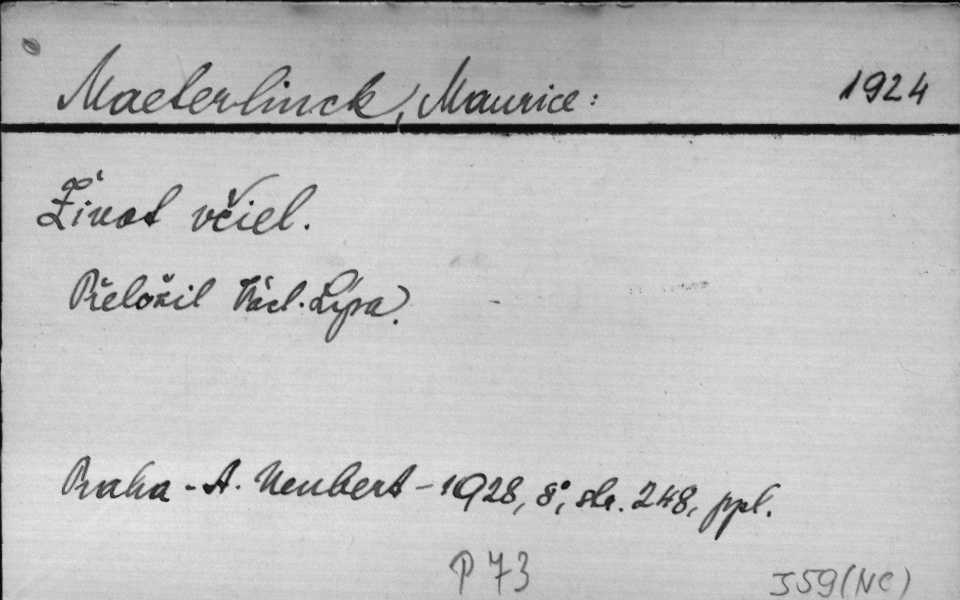 Maeterlinck, Maurice: 1924
Život včiel.
Přeložil Václ. Lýsa.
Praha - A. Neubert - 1928, 8°, str. 248, ppl.
P 73
J59(NC)